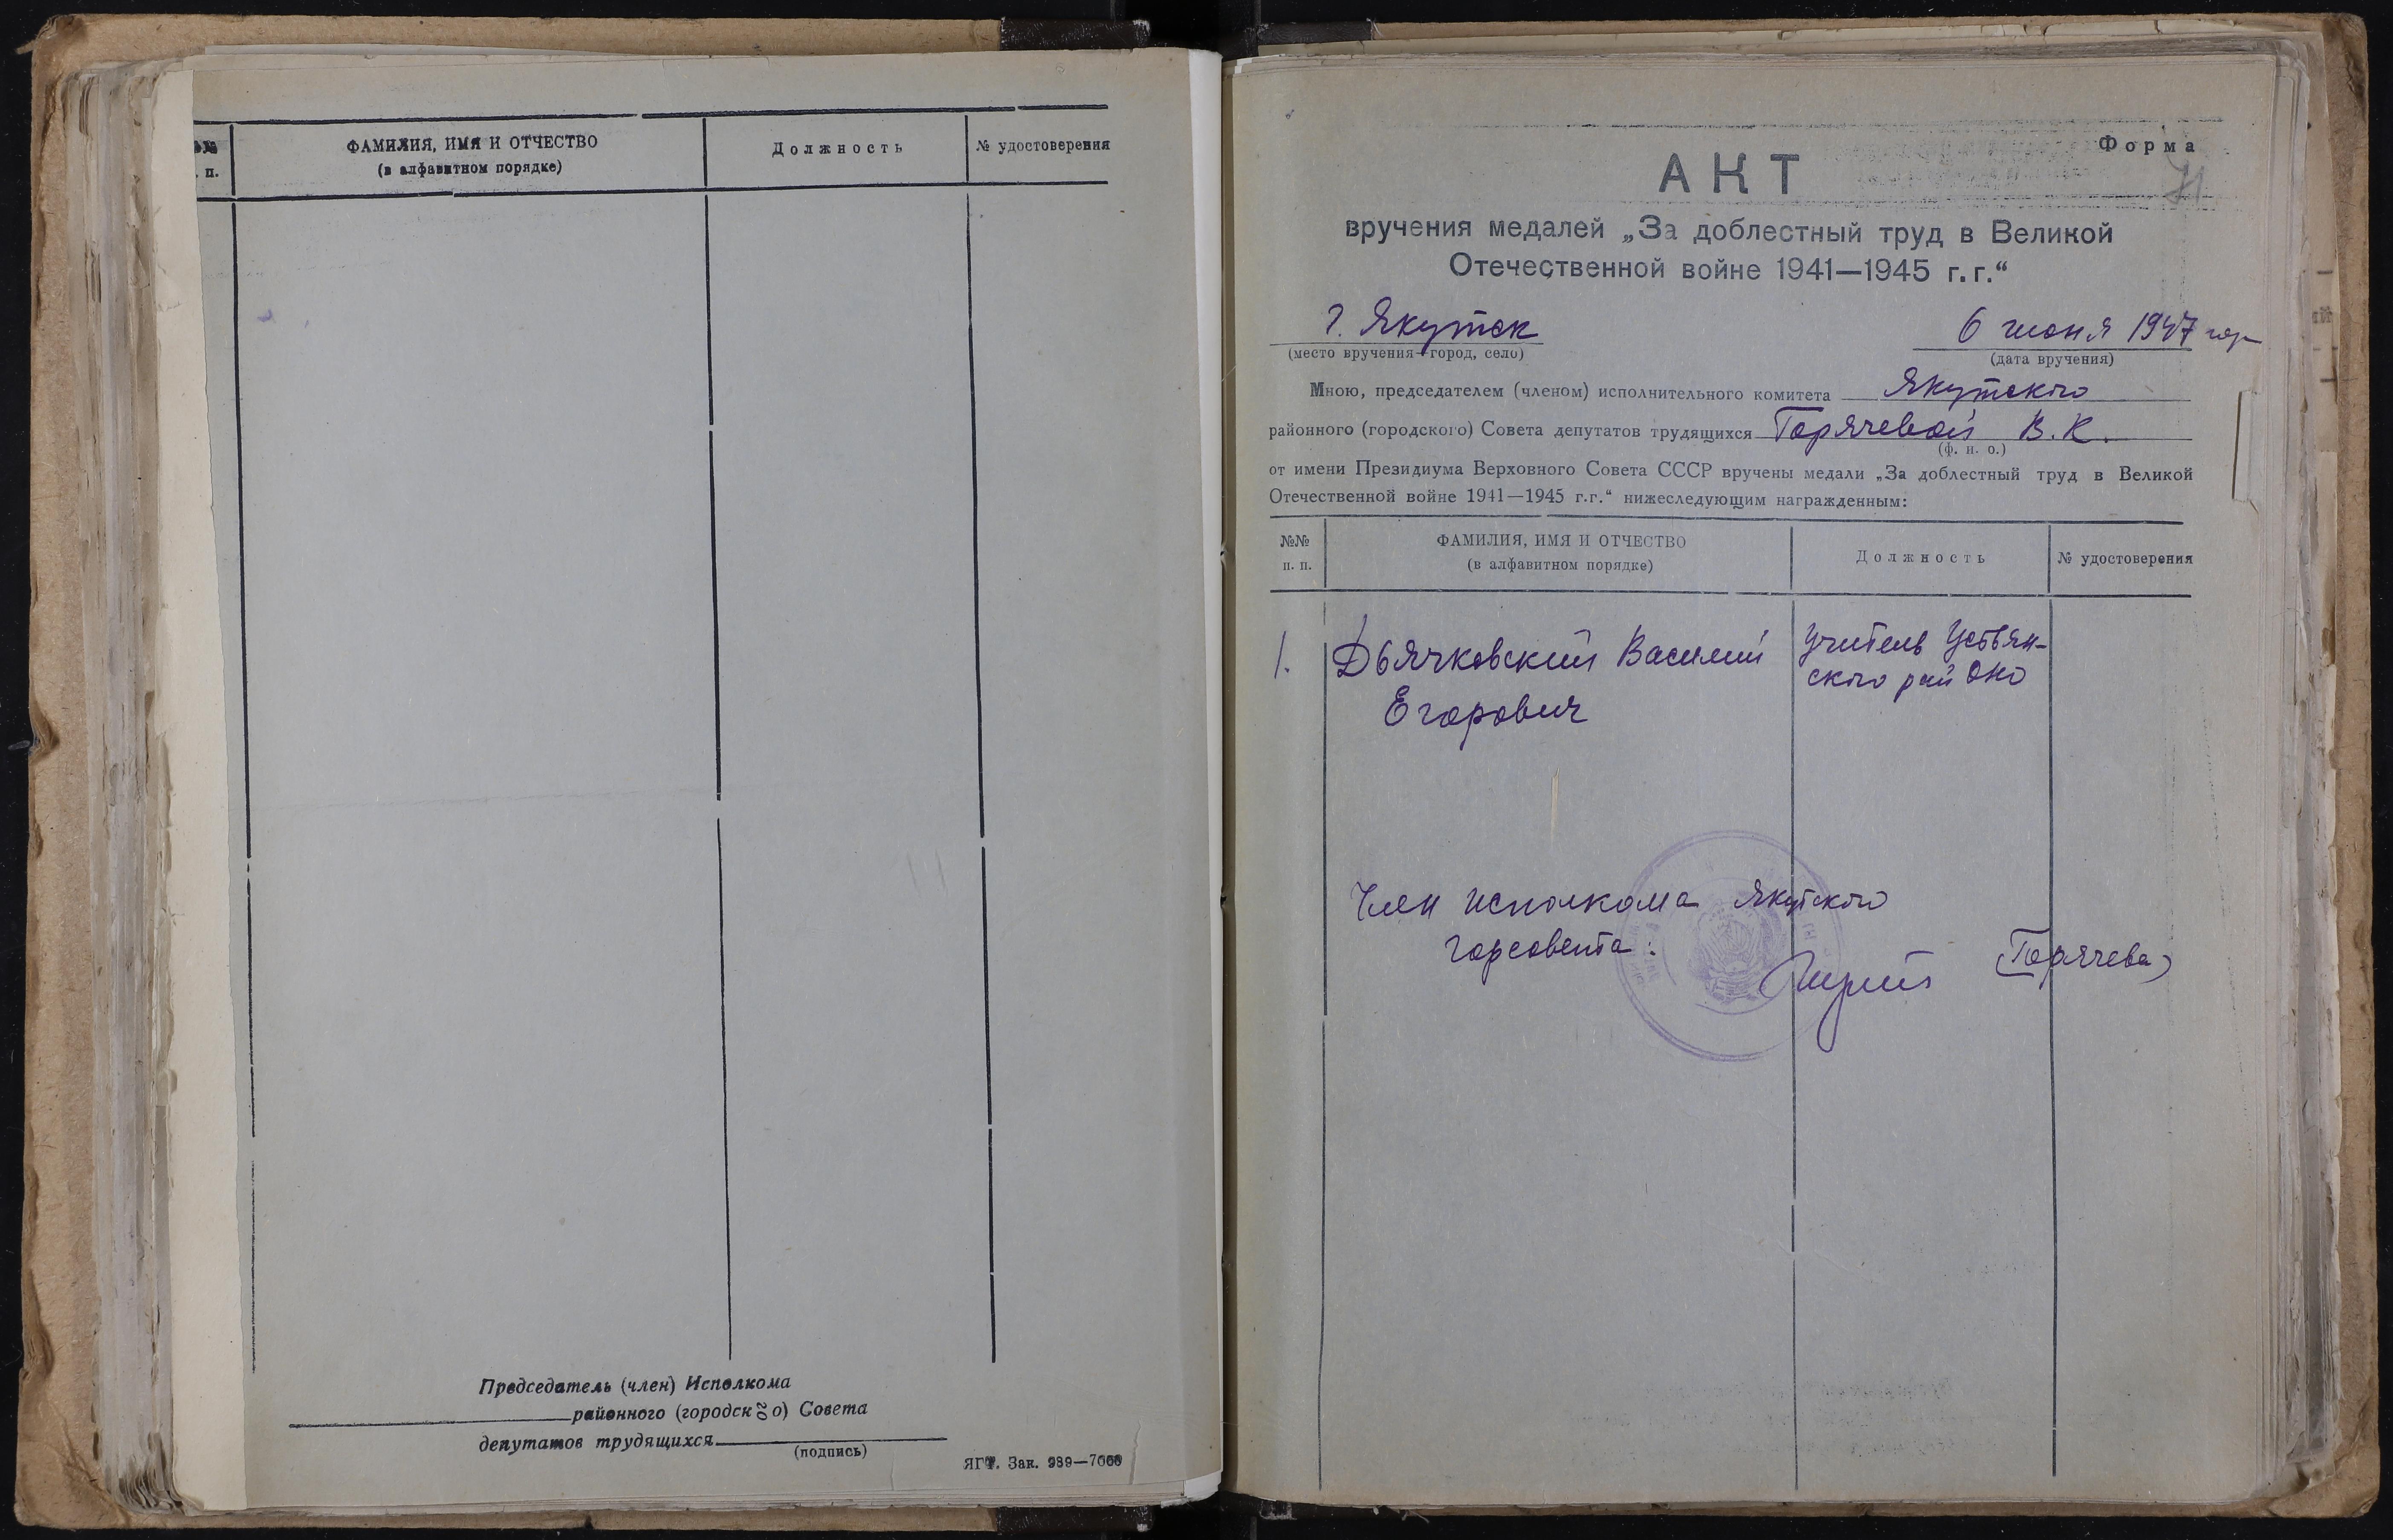 №№
п. п.
ФАМИЛИЯ, ИМЯ И ОТЧЕСТВО
(в алфавитном порядке)
Должность
№ удостоверения
Председатель (член) Исполкома
районного (городского) Совета
депутатов трудящихся
(подпись)
ЯГТ. Зак. 989—7000
Форма
71
АКТ
вручения медалей „За доблестный труд в Великой
Отечественной войне 1941—1945 г.г.“
г. Якутск
6 июня 1947 год
(место вручения—город, село)
(дата вручения)
Мною, председателем (членом) исполнительного комитета Якутского
районного (городского) Совета депутатов трудящихся Горячевой В. К.
(ф. и. о.)
от имени Президиума Верховного Совета СССР вручены медали „За доблестный труд в Великой
Отечественной войне 1941—1945 г.г.“ нижеследующим награжденным:
№№
п. п.
ФАМИЛИЯ, ИМЯ И ОТЧЕСТВО
(в алфавитном порядке)
Должность
№ удостоверения
1. Дьячковский Василий
Егорович
учитель Устьян-
ского рай ОНО
Член исполкома Якутского
горсовета:
(Горячева)